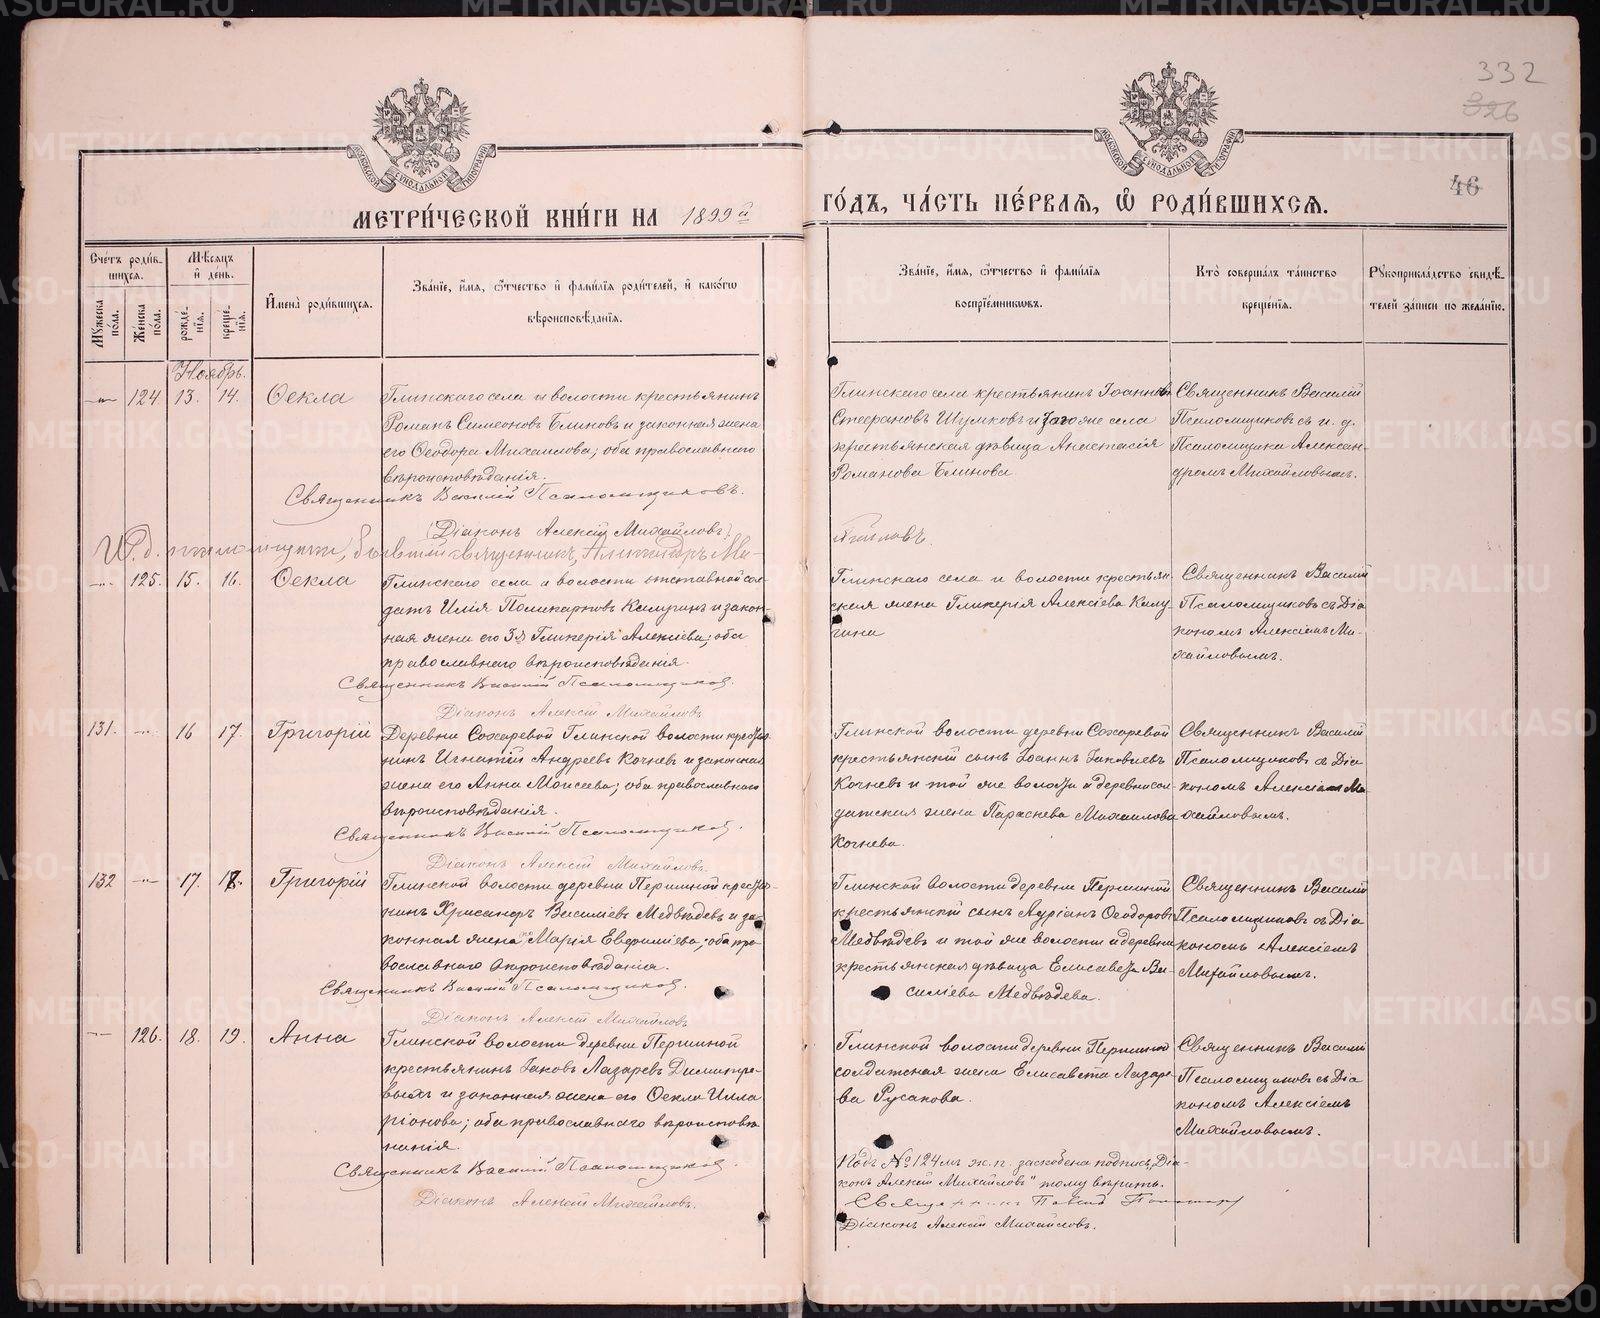 332
326
46
МЕТРИ́ЧЕСКОЙ КНИ́ГИ НА 1899й
ГО́ДЪ, ЧА́СТЬ ПЕ́РВАѦ, Ѽ РОДИ́ВШИХСѦ.
Сче́тъ роди́в-
шихсѧ.
Мꙋжеска по́ла.
Же́нска по́ла.
Мѣ́сѧцъ
и҆ де́нь.
рожде́-
нїѧ.
креще́-
нїѧ.
И҆мена̀ роди́вшихсѧ.
Зва́нїе, и҆́мѧ, ѻ҆́тчество и҆ фами́лїѧ роди́телей, и҆ како́гѡ
вѣроисповѣ́данїѧ.
Зва́нїе, и҆́мѧ, ѻ҆́тчество и҆ фами́лїѧ
воспрїе́мникѡвъ.
Кто̀ соверша́лъ та́инство
креще́нїѧ.
Рꙋкоприкла́дство свидѣ́-
телей за́писи по жела́нїю.
Ноябрь.
-"- 124 13. 14. Ѳекла
Глинскаго села и волости крестьянинъ
Романъ Симеоновъ Блиновъ и законная жена
его Ѳеодора Михаилова; оба православнаго
вѣроисповѣданія.
Священникъ Василій Псаломщиковъ.
(Діаконъ Алексій Михайловъ)
И.д. псаломщика, бывшій священникъ, Александръ Ми-
хайловъ.
Глинскаго села крестьянинъ Іоаннъ
Стефановъ Шумковъ и того же села
крестьянская дѣвица Анастасія
Романова Блинова
Священникъ Василій
Псаломщиковъ съ и. д.
Псаломщика Алексан-
дромъ Михайловымъ.
-"- 125. 15. 16. Ѳекла
Глинскаго села и волости отставной сол-
датъ Илія Поликарповъ Калугинъ и закон-
ная жена его Гликерія Алексіева; оба
православнаго вѣроисповѣданія.
Священникъ Василій Псаломщиковъ.
Діаконъ Алексій Михайловъ
Глинскаго села и волости крестьян-
ская жена Гликерія Алексіева Калу-
гина
Священникъ Василій
Псаломщиковъ съ Діа
кономъ Алексіемъ Ми-
хайловымъ.
131. -"- 16 17. Григорій
Деревни Сохаревой Глинской волости крестья-
нинъ Игнатій Андреевъ Кочневъ и законная
жена его Анна Моисеева; оба православнаго
вѣроисповѣданія.
Священникъ Василій Псаломщиковъ.
Діаконъ Алексій Михайловъ.
Глинской волости деревни Сохаревой
крестьянскій сынъ Іоаннъ Іаковлевъ
Кочневъ и той же волости и деревни сол-
датская жена Параскева Михаилова
Кочнева.
Священникъ Василій
Псаломщиковъ съ Діа
кономъ Алексіемъ Ми-
хайловымъ.
132 -"- 17. 18. Григорій
Глинской волости деревни Першиной крестья-
нинъ Хрисанфъ Василіевъ Медвѣдевъ и за-
конная жена его Марія Евфиміева; оба пра-
вославнаго вѣроисповѣданія.
Священникъ Василій Псаломщиковъ.
Діаконъ Алексій Михайловъ
Глинской волости деревни Першиной
крестьянскій сынъ Адріанъ Ѳеодоровъ
Медвѣдевъ и той же волости и деревни
крестьянская дѣвица Елисавета Ва-
силіева Медвѣдева.
Священникъ Василій
Псаломщиковъ съ Діа
кономъ Алексіемъ
Михайловымъ.
-"- 126. 18. 19. Анна
Глинской волости деревни Першиной
крестьянинъ Іаковъ Лазаревъ Димитріе-
выхъ и законная жена его Ѳекла Илла
ріонова; оба православнаго вѣроисповѣ
данія.
Священникъ Василій Псаломщиковъ.
Діаконъ Алексій Михайловъ.
Глинской волости деревни Першиной
солдатская жена Елисавета Лазаре-
ва Русакова.
Священникъ Василій
Псаломщиковъ съ Діа
кономъ Алексіемъ
Михайловымъ.
Подъ № 124мъ ж. п. заскоблена подпись „Діа-
конъ Алексій Михайловъ" тому вѣрить.
Священникъ
Діаконъ Алексій Михайловъ.
METRIKI.GASO-URAL.RU